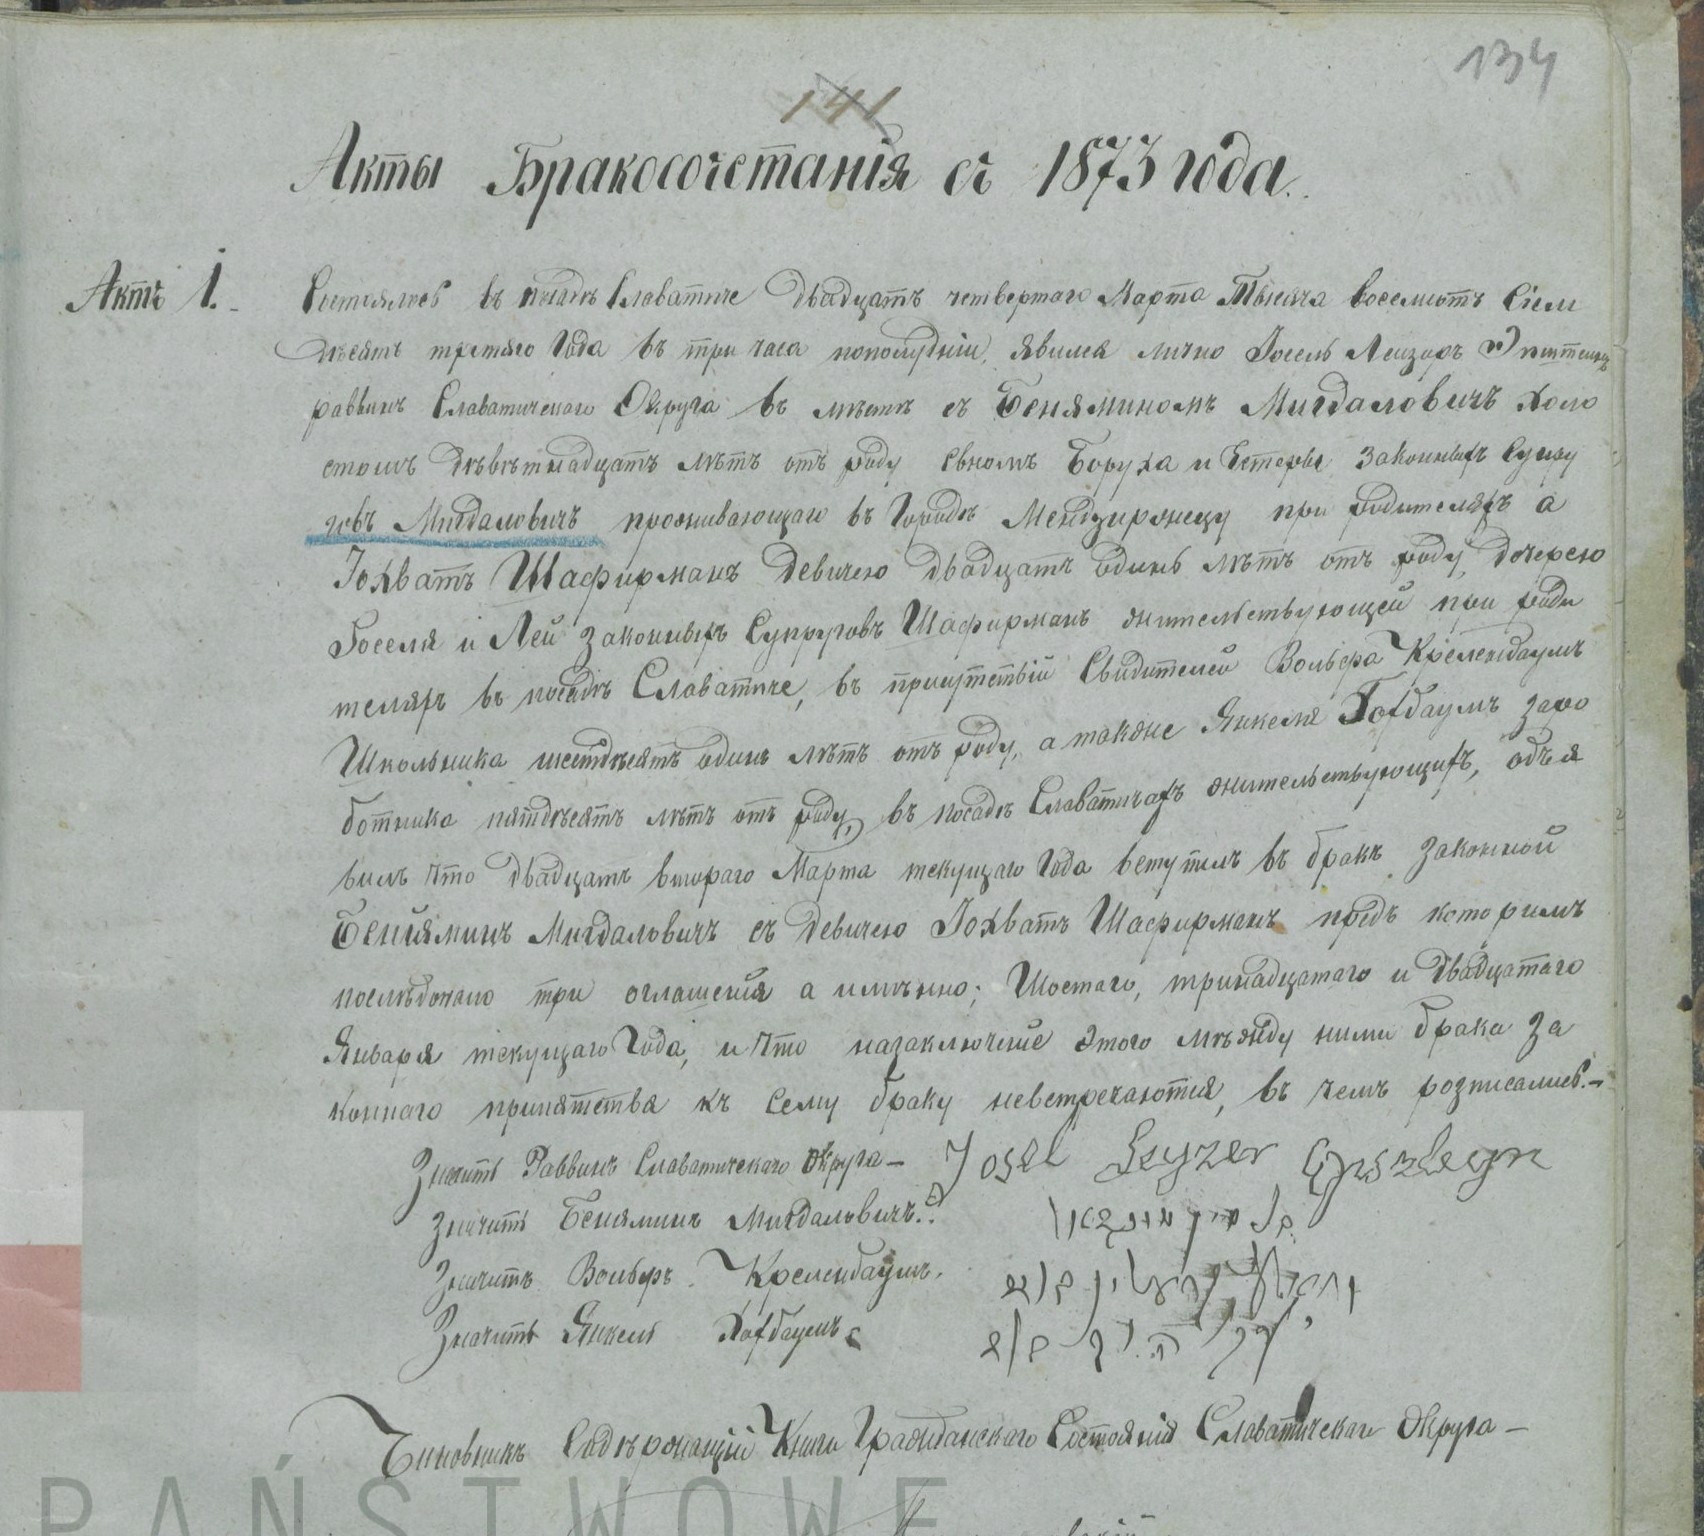 134
141
Акты Бракосочетанія съ 1873 года.
Актъ 1.
Состоялось въ посадѣ Славатиче двадцать четвертаго Марта Тысяча восемьсотъ Сіем
дѣсятъ третяго Года въ три часа пополудніи, явился лично Іосель Лейзоръ
раввинъ Славатичскаго Округа въ мѣстѣ съ Бенямином Мигдаловичъ холо
стомъ дѣвѣтнадцать лѣтъ отъ роду сыномъ Боруха и Естеры законныхъ Супру
говъ Мигдаловичъ проживающаго въ Городѣ Мендзиржецу при родителяхъ а
Іохватъ Шафирманъ девичею двадцать одинъ лѣтъ отъ роду, дочерею
Іоселя и Леи законныхъ Супруговъ Шафирманъ жительствующей при роди
теляхъ въ посадѣ Славатиче, въ присутствіи Свидителей Вольфа Крелендаумъ
Школьника шестдѣсятъ одинъ лѣтъ отъ роду, а также Янкеля Гофбаумъ заро
ботника пятдѣсятъ лѣтъ отъ роду, въ посадѣ Славатичахъ жительствующихъ, объя
вилъ что двадцать втораго Марта текущаго Года вступилъ въ бракъ законной
Бенияминъ Мигдаловичъ съ девичею Іохватъ Шафирманъ предъ которимъ
послѣдовало три оглашенія а имѣнно; Шостаго, тринадцатаго и двадцатаго
Января текущаго Года, и что назаключеніе этого мѣжду ними брака за
коннаго припятства къ сему браку невстречаются, въ чемъ розписались.—
Значитъ Раввинъ Славатичскаго Округа — Josel Leyzer
Значитъ Бенямин Мигдаловичъ.
Значитъ Вольфъ Крелендаумъ.
Значитъ Янкель Хофбаумъ
Чиновникъ Содѣржащій Книги Гражданскаго Состоянія Славатичскаго Округа —
PAŃSTWOWE